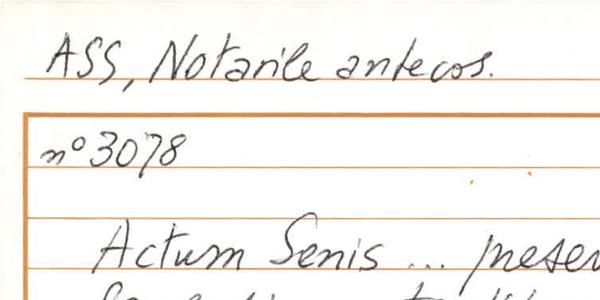 ASS, Notarile antecos.
n° 3078
Actum Senis ...